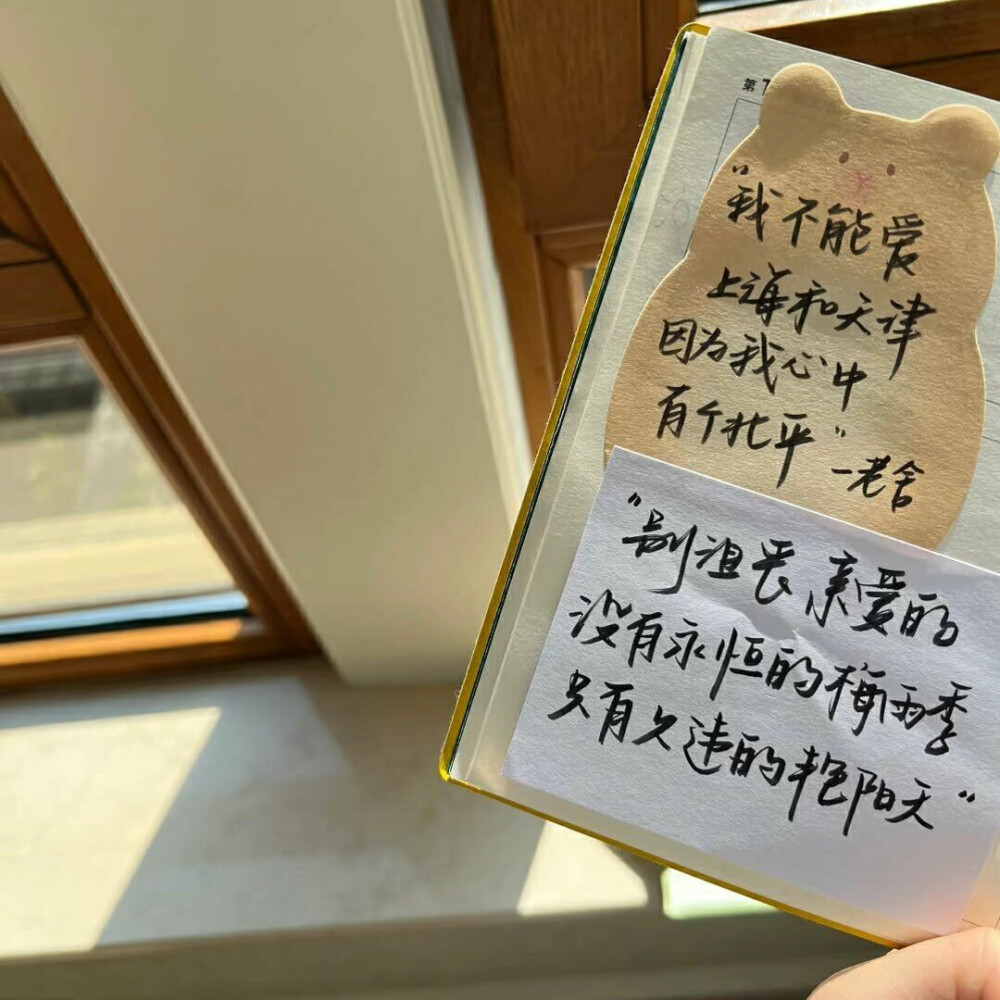 第
"我不能爱
上海和天津
因为我心中
有个北平"
-老舍
"别沮丧亲爱的
没有永恒的梅雨季
只有久违的艳阳天"